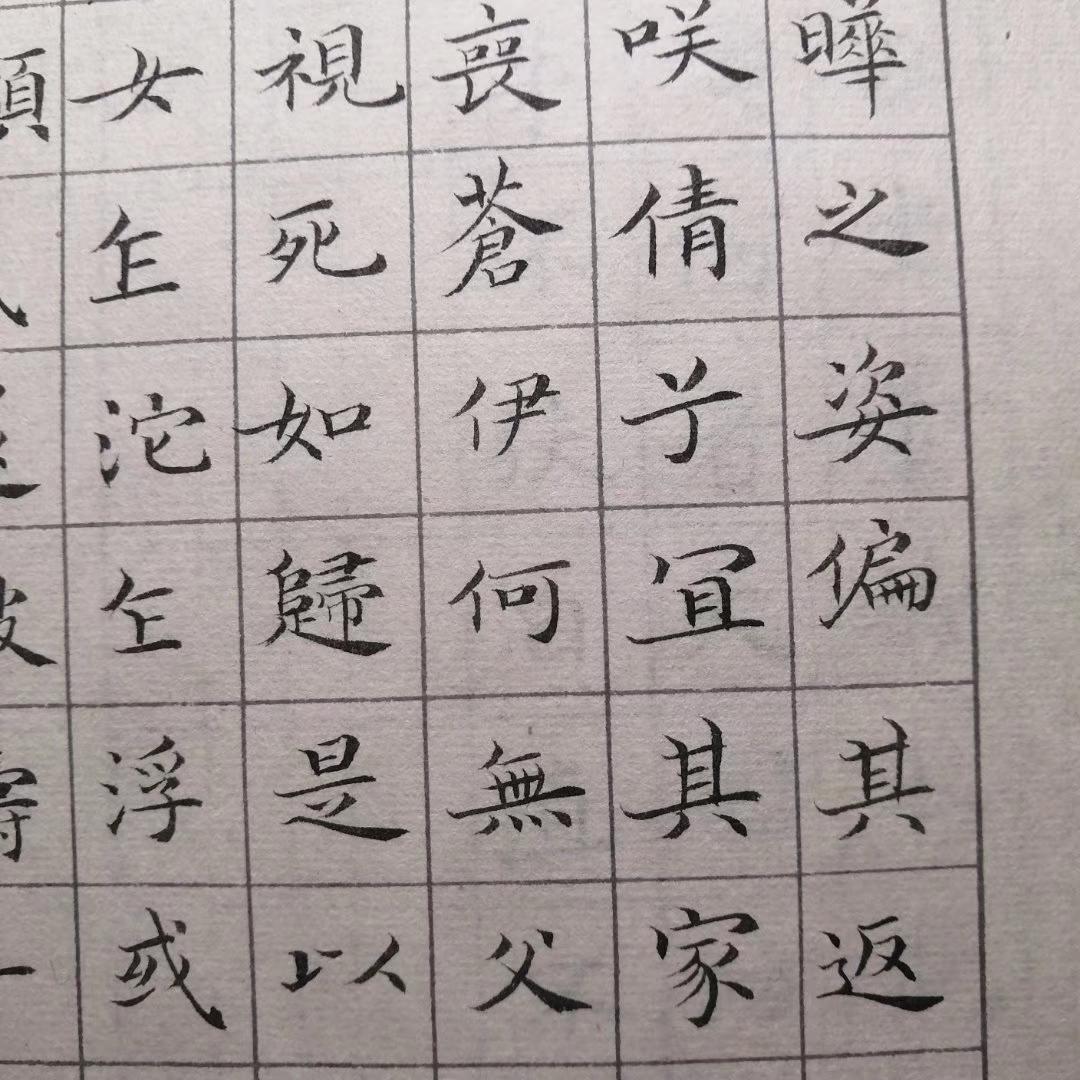 曄之姿偏其返
咲倩兮冝其家
喪蒼伊何無父
視死如歸是以
女乍沱乍浮或